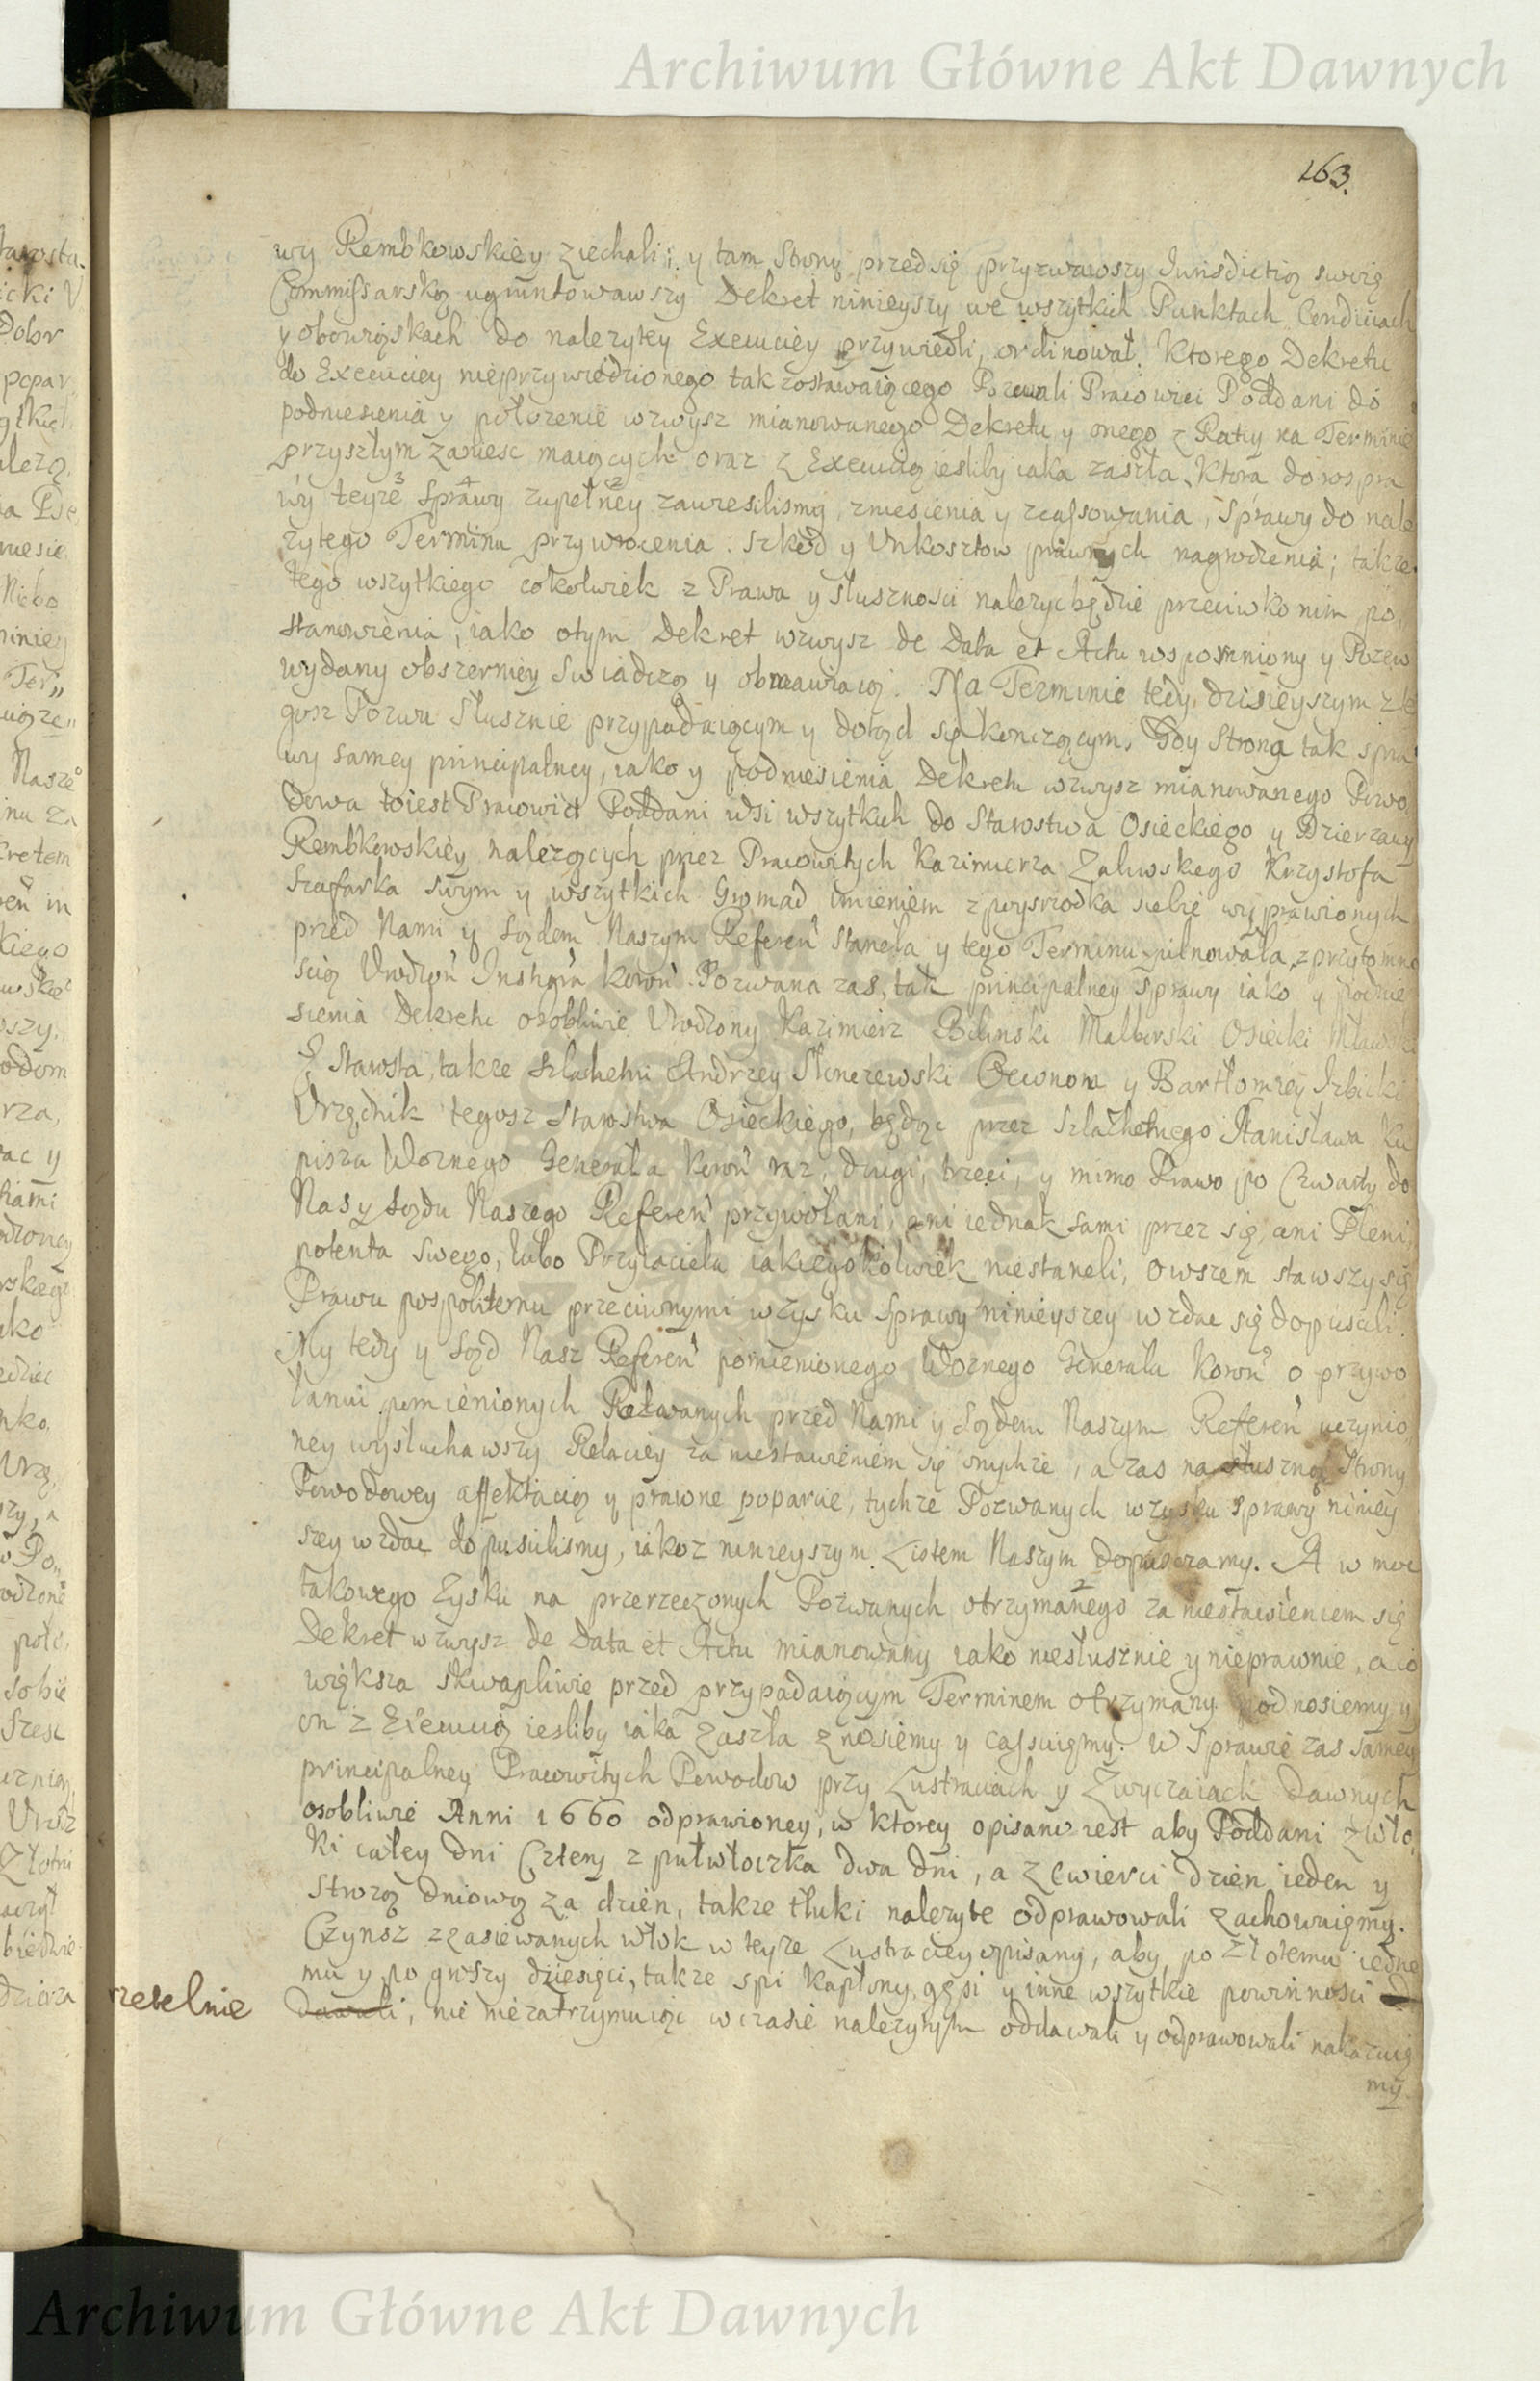 Archiwum Główne Akt Dawnych
163.
wy Rembkowskiey ziechali; y tam Strony przed się przyzwawszy Jurisdictią swoią
Commissarską ugruntowawszy Dekret ninieyszy we wszytkich Punktach Condiciach
y obowiąskach do nalezytey Execuciey przywiedli, ordinował. Ktorego Dekretu
do Execuciey nieprzywiedzionego tak zostawaiącego Pozwali Pracowici Poddani do
podniesienia y położenie wzwysz mianowanego Dekretu y onego z Ratiy na Terminie
przyszłym zaniesc maiących oraz z Execucią iesliby iaka zaszła, Ktora do rospra
wy teyze Sprawy zupełney zawiesilismy, zniesienia y zcassowania, Sprawy do nale
zytego Terminu przywrocenia. Szkod y Unkosztow prawnych nagrodzenia; takze
tego wszytkiego cokolwiek z Prawa y słusznosci nalezyc będzie przeciwko nim po
stanowienia, iako otym Dekret wzwysz de Data et Actu wspomniony y Pozew
wydany obszerniey Swiadczą y obmawiaią. Na Terminie tedy dzisieyszym z te
gosz Pozwu Słusznie przypadaiącym y dotąd się konczącym, Gdy Strona tak spra
wy samey principalney, iako y podniesienia Dekretu wzwysz mianowanego Powo
dowa toiest Pracowici Poddani wsi wszytkich do Starostwa Osieckiego y Dzierzawy
Rembkowskiey nalezących przez Pracowitych Kazimierza Zaluwskiego Krzystofa
Szaffarka swym y wszytkich Gromad imieniem z pysrzodka siebie wyprawionych
przed Nami y Sądem Naszym Referen stanęła y tego Terminu pilnowała, z przytomno
scią Urodzon Instig̃ra Koron. Pozwana zas, tak principalney sprawy iako y podnie
sienia Dekretu osobliwie Urodzony Kazimierz Bilinski Malborski Osiecki Mławski
Starosta, takze Szlachetni Andrzey Slenczewski Oeconom y Bartłomiey Izbicki
Urzędnik tegosz Starostwa Osieckiego, będąc przez Szlachetnego Stanisława Ku
pisza Woznego Generała Koron raz, drugi, trzeci, y mimo Prawo po Czwarty do
Nas y Sądu Naszego Referen przywołani, ani iednak sami przez się, ani Pleni
potenta swego, lubo Przyiaciela iakiegokolwiek niestaneli, owszem stawszy się
Prawu pospolitemu przeciwnymi w zysku sprawy ninieyszey w zdac się dopuscili.
My tedy y Sąd Nasz Referen pomienionego Woznego Generała Koron o przywo
łaniu pomienionych Pozwanych przed Nami y Sądem Naszym Referen uczynio
ney wysłuchawszy Relaciey za niestawieniem się onychze, a zas na słuszną Strony
Powodowey affektacią y prawne poparcie, tychze Pozwanych w zysku sprawy niniey
szey w zdac dopuscilismy, iakoz ninieyszym Listem Naszym dopuszczamy. A w moc
takowego Zysku na przerzeczonych Pozwanych otrzymanego za niestawieniem się
Dekret wzwysz de Data et Actu mianowany iako niesłusznie y nieprawnie, a co
większa skwapliwie przed przypadaiącym Terminem otrzymany podnosiemy y
on z Execucią iesliby iaka zaszła znosiemy y cassuiemy. W Sprawie zas samey
principalney Pracowitych Powodow przy Lustraciach y Zwyczaiach dawnych
osobliwie Anni 1660 odprawioney, w ktorey opisano iest aby Poddani z wło
ki całey dni Cztery z pułwłoczka dwa dni, a z cwierci dzien ieden y
Strozą dniową za dzien, takze tłuki nalezyte odprawowali zachowuiemy.
Czynsz z zasiewanych włok w teyze Lustraciey opisany, aby po złotemu iedne
mu y po groszy dziesięci, takze spi kapłony, gęsi y inne wszytkie powinnosci d
rzetelnie dawali, nic niezatrzymuiąc w czasie nalezytym oddawali y odprawowali nakazuie
my.
Archiwum Główne Akt Dawnych